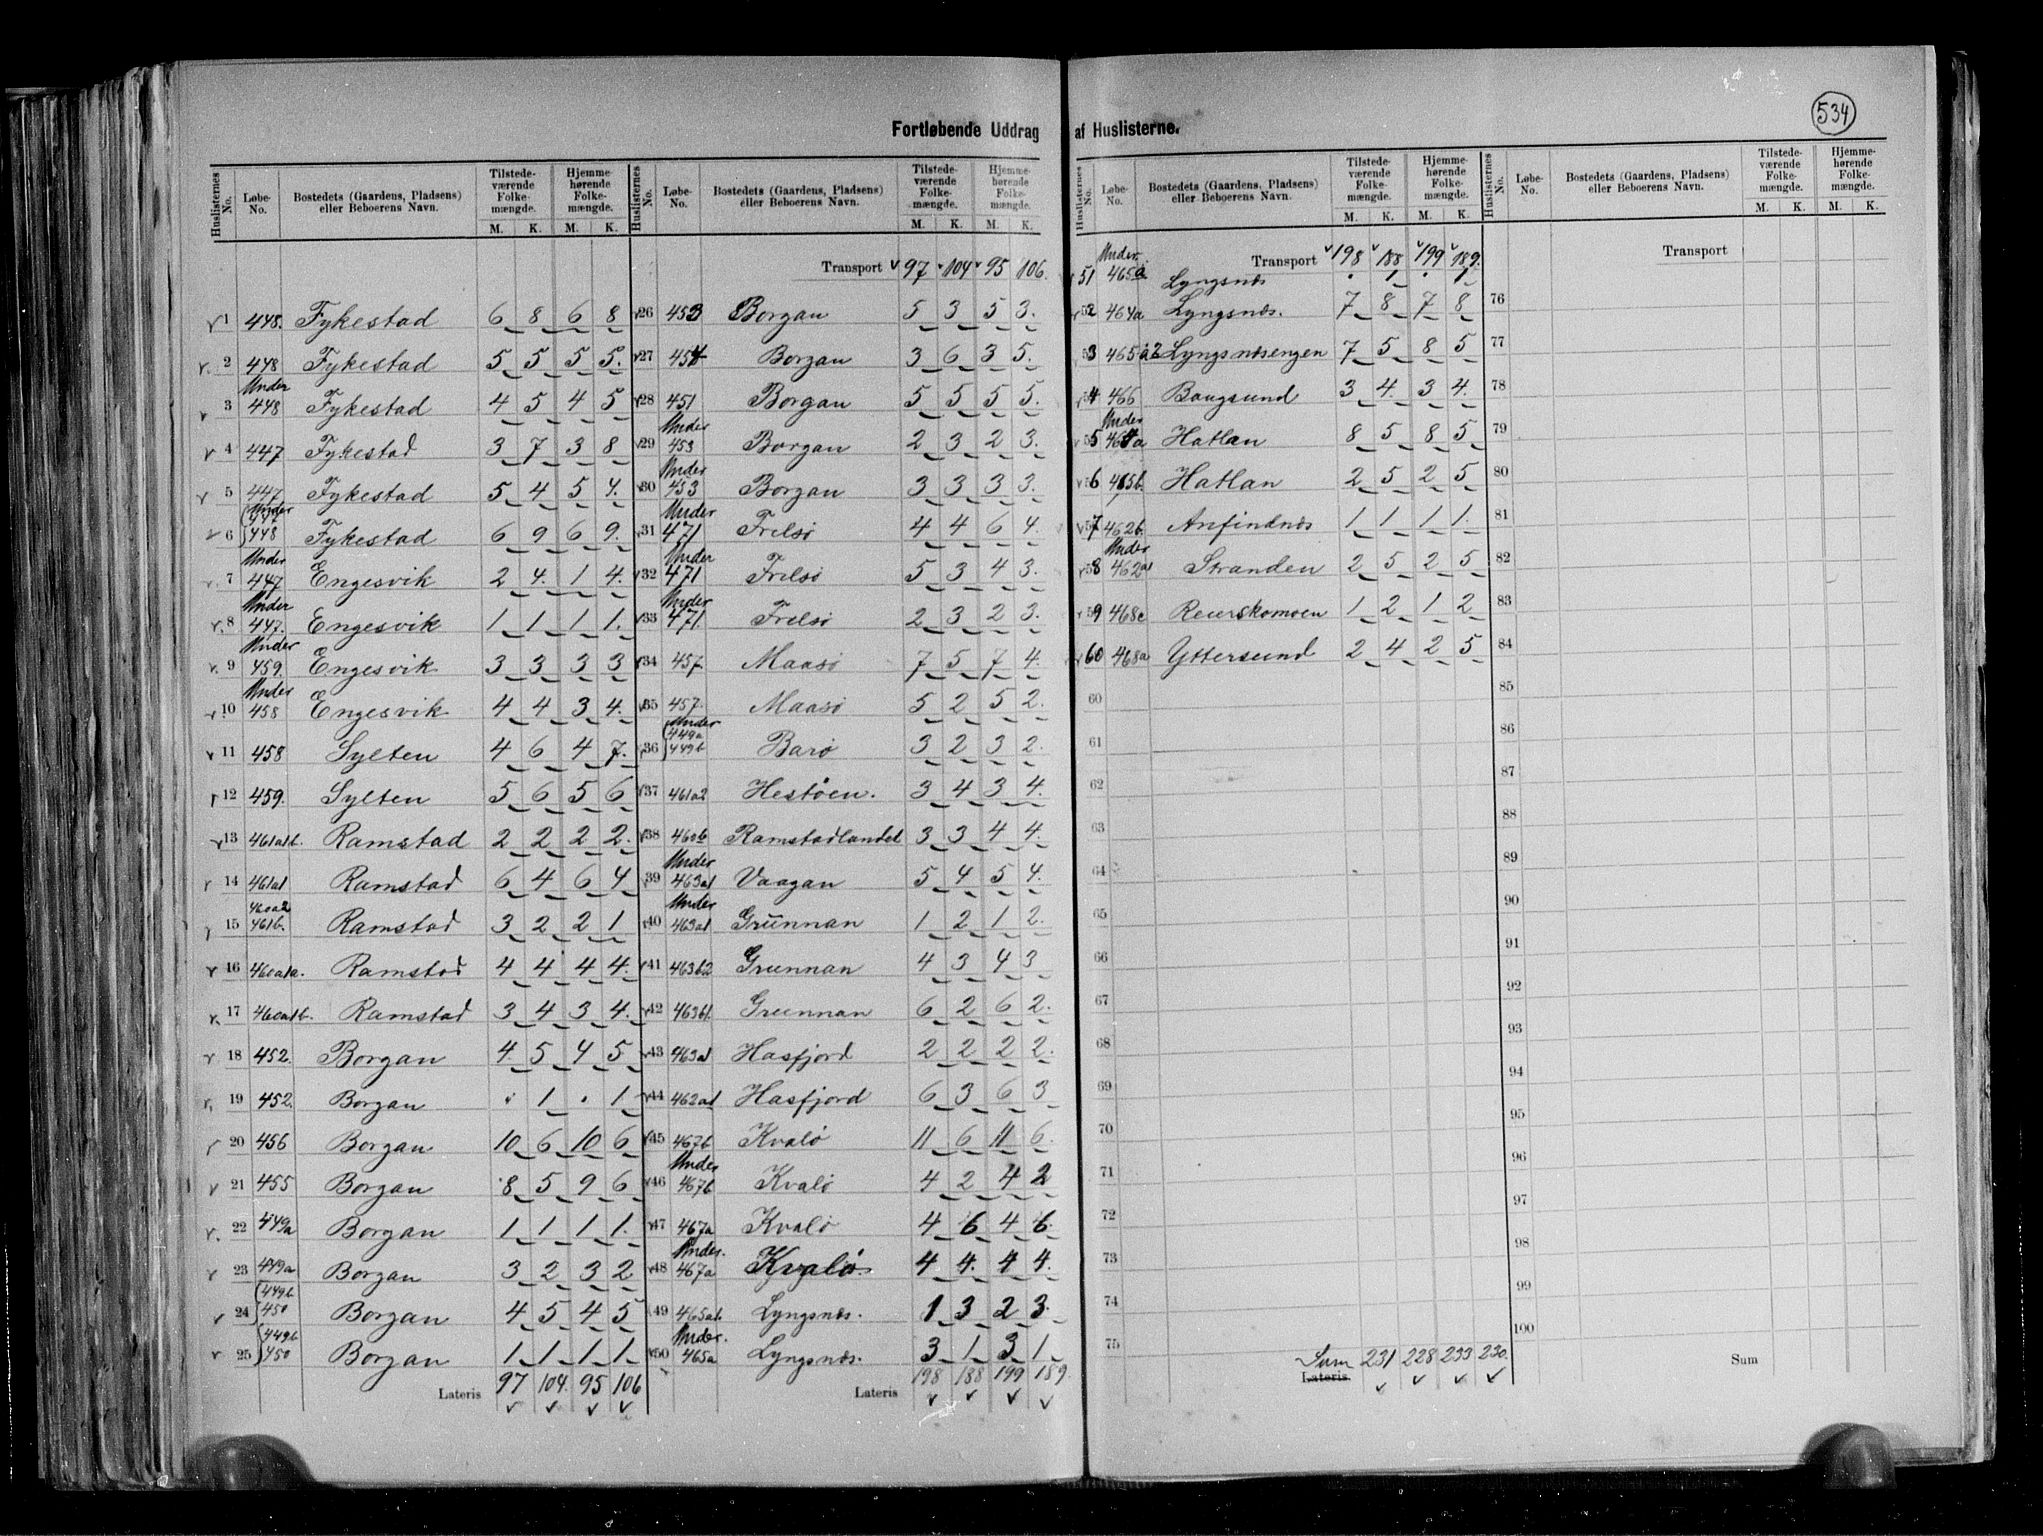 534
Fortløbende Uddrag af Huslisterne.
Huslisternes No. Løbe-No. Bostedets (Gaardens, Pladsens) eller Beboerens Navn. Tilstedeværende Folkemængde. M. K. Hjemmehørende Folkemængde. M. K.
1 448. Fykestad 6 8 6 8
2 448 Fykestad 5 5 5 5.
3 Under 448 Fykestad 4 5 4 5
4 447 Fykestad 3 7 3 8
5 447 Fykestad 5 4 5 4.
6 Under 447 448 Fykestad 6 9 6 9.
7 Under 447 Engesvik 2 4. 1 4.
8 Under 447. Engesvik 1 1 1 1.
9 Under 459. Engesvik 3 3 3 3
10 Under 458 Engesvik 4 4 3 4.
11 458 Sylten 4 6 4 7.
12 459. Sylten 5 6 5 6
13 461a1b. Ramstad 2 2 2 2.
14 461a1 Ramstad 6 4 6 4
15 460a2 461b. Ramstad 3 2 2 1
16 460a1a. Ramstad 4 4 4 4.
17 460a1b. Ramstad 3 4 3 4.
18 452. Borgan 4 5 4 5
19 452. Borgan . 1 . 1
20 456 Borgan 10 6 10 6
21 455 Borgan 8 5 9 6
22 449a Borgan 1 1 1 1.
23 449a Borgan 3 2 3 2
24 449b 450 Borgan 4 5 4 5
25 449b 450 Borgan 1 1 1 1.
Lateris 97 104. 95 106
Huslisternes No. Løbe-No. Bostedets (Gaardens, Pladsens) eller Beboerens Navn. Tilstedeværende Folkemængde. M. K. Hjemmehørende Folkemængde. M. K.
Transport 97 104 95 106.
26 453 Borgan 5 3 5 3.
27 454 Borgan 3 6 3 5.
28 451 Borgan 5 5 5 5.
29 Under 453 Borgan 2 3 2 3.
30 Under 453 Borgan 3 3 3 3.
31 Under 471 Frelsø 4 4 6 4.
32 Under 471 Frelsø 5 3 4 3.
33 Under 471 Frelsø 2 3 2 3.
34 457. Maasø 7 5 7 4.
35 457. Maasø 5 2 5 2.
36 Under 449a 449b Barø 3 2 3 2.
37 461a2 Hestøen. 3 4 3 4.
38 460b Ramstadlandet 3 3 4 4.
39 Under 463a1 Vaagan 5 4 5 4.
40 Under 463a1 Grünnan 1 2 1 2.
41 463b2 Grunnan 4 3 4 3
42 463b1. Grunnan 6 2 6 2.
43 463a1 Hasfjord 2 2 2 2.
44 462a1 Hasfjord 6 3 6 3
45 467b Kvalø 11 6 11 6.
46 Under 467b Kvalø 4 2 4 2
47 467a Kvalø 4 6 4 6.
48 Under. 467a Kvalø 4 4. 4 4.
49 465ab Lyngsnæs. 1 3 2 3.
50 Under. 465a Lyngsnæs. 3 1 3 1.
Lateris 198 188 199 189.
Huslisternes No. Løbe-No. Bostedets (Gaardens, Pladsens) eller Beboerens Navn. Tilstedeværende Folkemængde. M. K. Hjemmehørende Folkemængde. M. K.
Transport 198 188 199 189.
51 Under. 465a Lyngsnæs . 1 . 1
52 464a Lyngsnæs. 7 8 7 8
53 465a2 Lyngsnæsengen 7 5 8 5
54 466 Bangsund 3 4. 3 4.
55 Under 464a Hatlan 8 5 8 5
56 465b. Hatlan 2 5 2 5
57 462b. Anfindnæs 1 1 1 1.
58 Under 462a1 Stranden 2 5 2 5
59 468c Reierskomoen 1 2 1 2
60 468a Yttersund 2 4 2 5
60
61
62
63
64
65
66
67
68
69
70
71
72
73
74
75
Sum Lateris 231 228 233 230.
Huslisternes No. Løbe-No. Bostedets (Gaardens, Pladsens) eller Beboerens Navn. Tilstedeværende Folkemængde. M. K. Hjemmehørende Folkemængde. M. K.
Transport
76
77
78
79
80
81
82
83
84
85
86
87
88
89
90
91
92
93
94
95
96
97
98
99
100
Sum